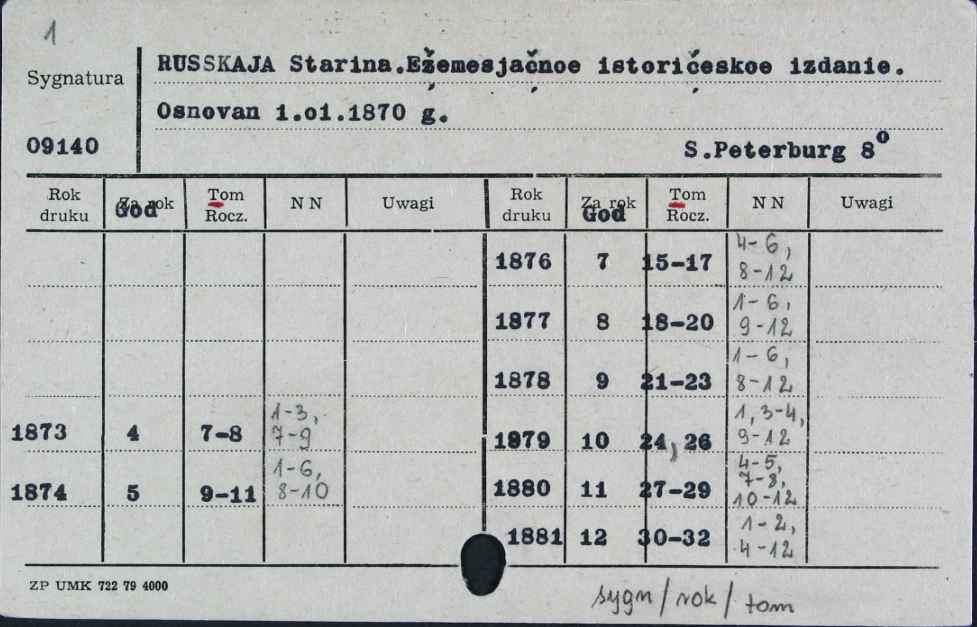 1
Sygnatura
RUSSKAJA Starina.Ežemesjačnoe istoričeskoe izdanie.
Osnovan 1.o1.1870 g.
09140
S.Peterburg 8º
Rok druku | Za rok God | Tom Rocz. | N N | Uwagi | Rok druku | Za rok God | Tom Rocz. | N N | Uwagi
1876 7 15-17 4-6, 8-12
1877 8 18-20 1-6, 9-12
1878 9 21-23 1-6, 8-12
1873 4 7-8 1-3, 7-9
1879 10 24, 26 1, 3-4, 9-12
1874 5 9-11 1-6, 8-10
1880 11 27-29 4-5, 7-8, 10-12
1881 12 30-32 1-2, 4-12
ZP UMK 722 79 4000
sygn/rok/tom